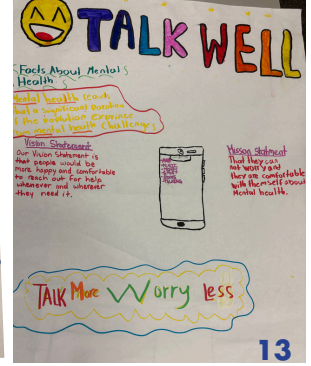 TALK WELL
Facts About Mental
Health
Mental health leads
that a significant
the population exprince
mental health challenges
Vision Statement
Our Vision Statement is
that people would be
more happy and comfortable
to reach out for help
whenever and wherever
they need it.
Misson Statment
That they can
not worry and
they are comfortable
with themself about
Mental health.
TALK More Worry less
13